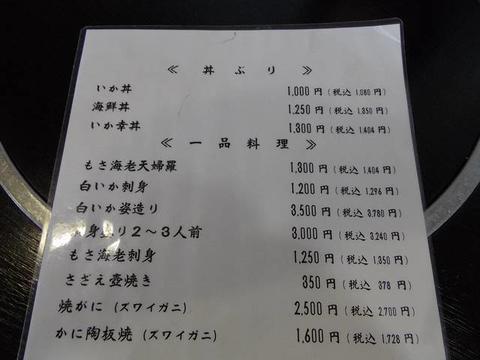 ≪ 丼ぶり ≫
いか丼 1,000 円 (税込 1,080 円)
海鮮丼 1,250 円 (税込 1,350 円)
いか幸丼 1,300 円 (税込 1,404 円)
≪ 一品料理 ≫
もさ海老天婦羅 1,300 円 (税込 1,404 円)
白いか刺身 1,200 円 (税込 1,296 円)
白いか姿造り 3,500 円 (税込 3,780 円)
身 り2〜3人前 3,000 円 (税込 3,240 円)
もさ海老刺身 1,250 円 (税込 1,350 円)
さざえ壺焼き 350 円 (税込 378 円)
焼がに (ズワイガニ) 2,500 円 (税込 2,700 円)
かに陶板焼 (ズワイガニ) 1,600 円 (税込 1,728 円)